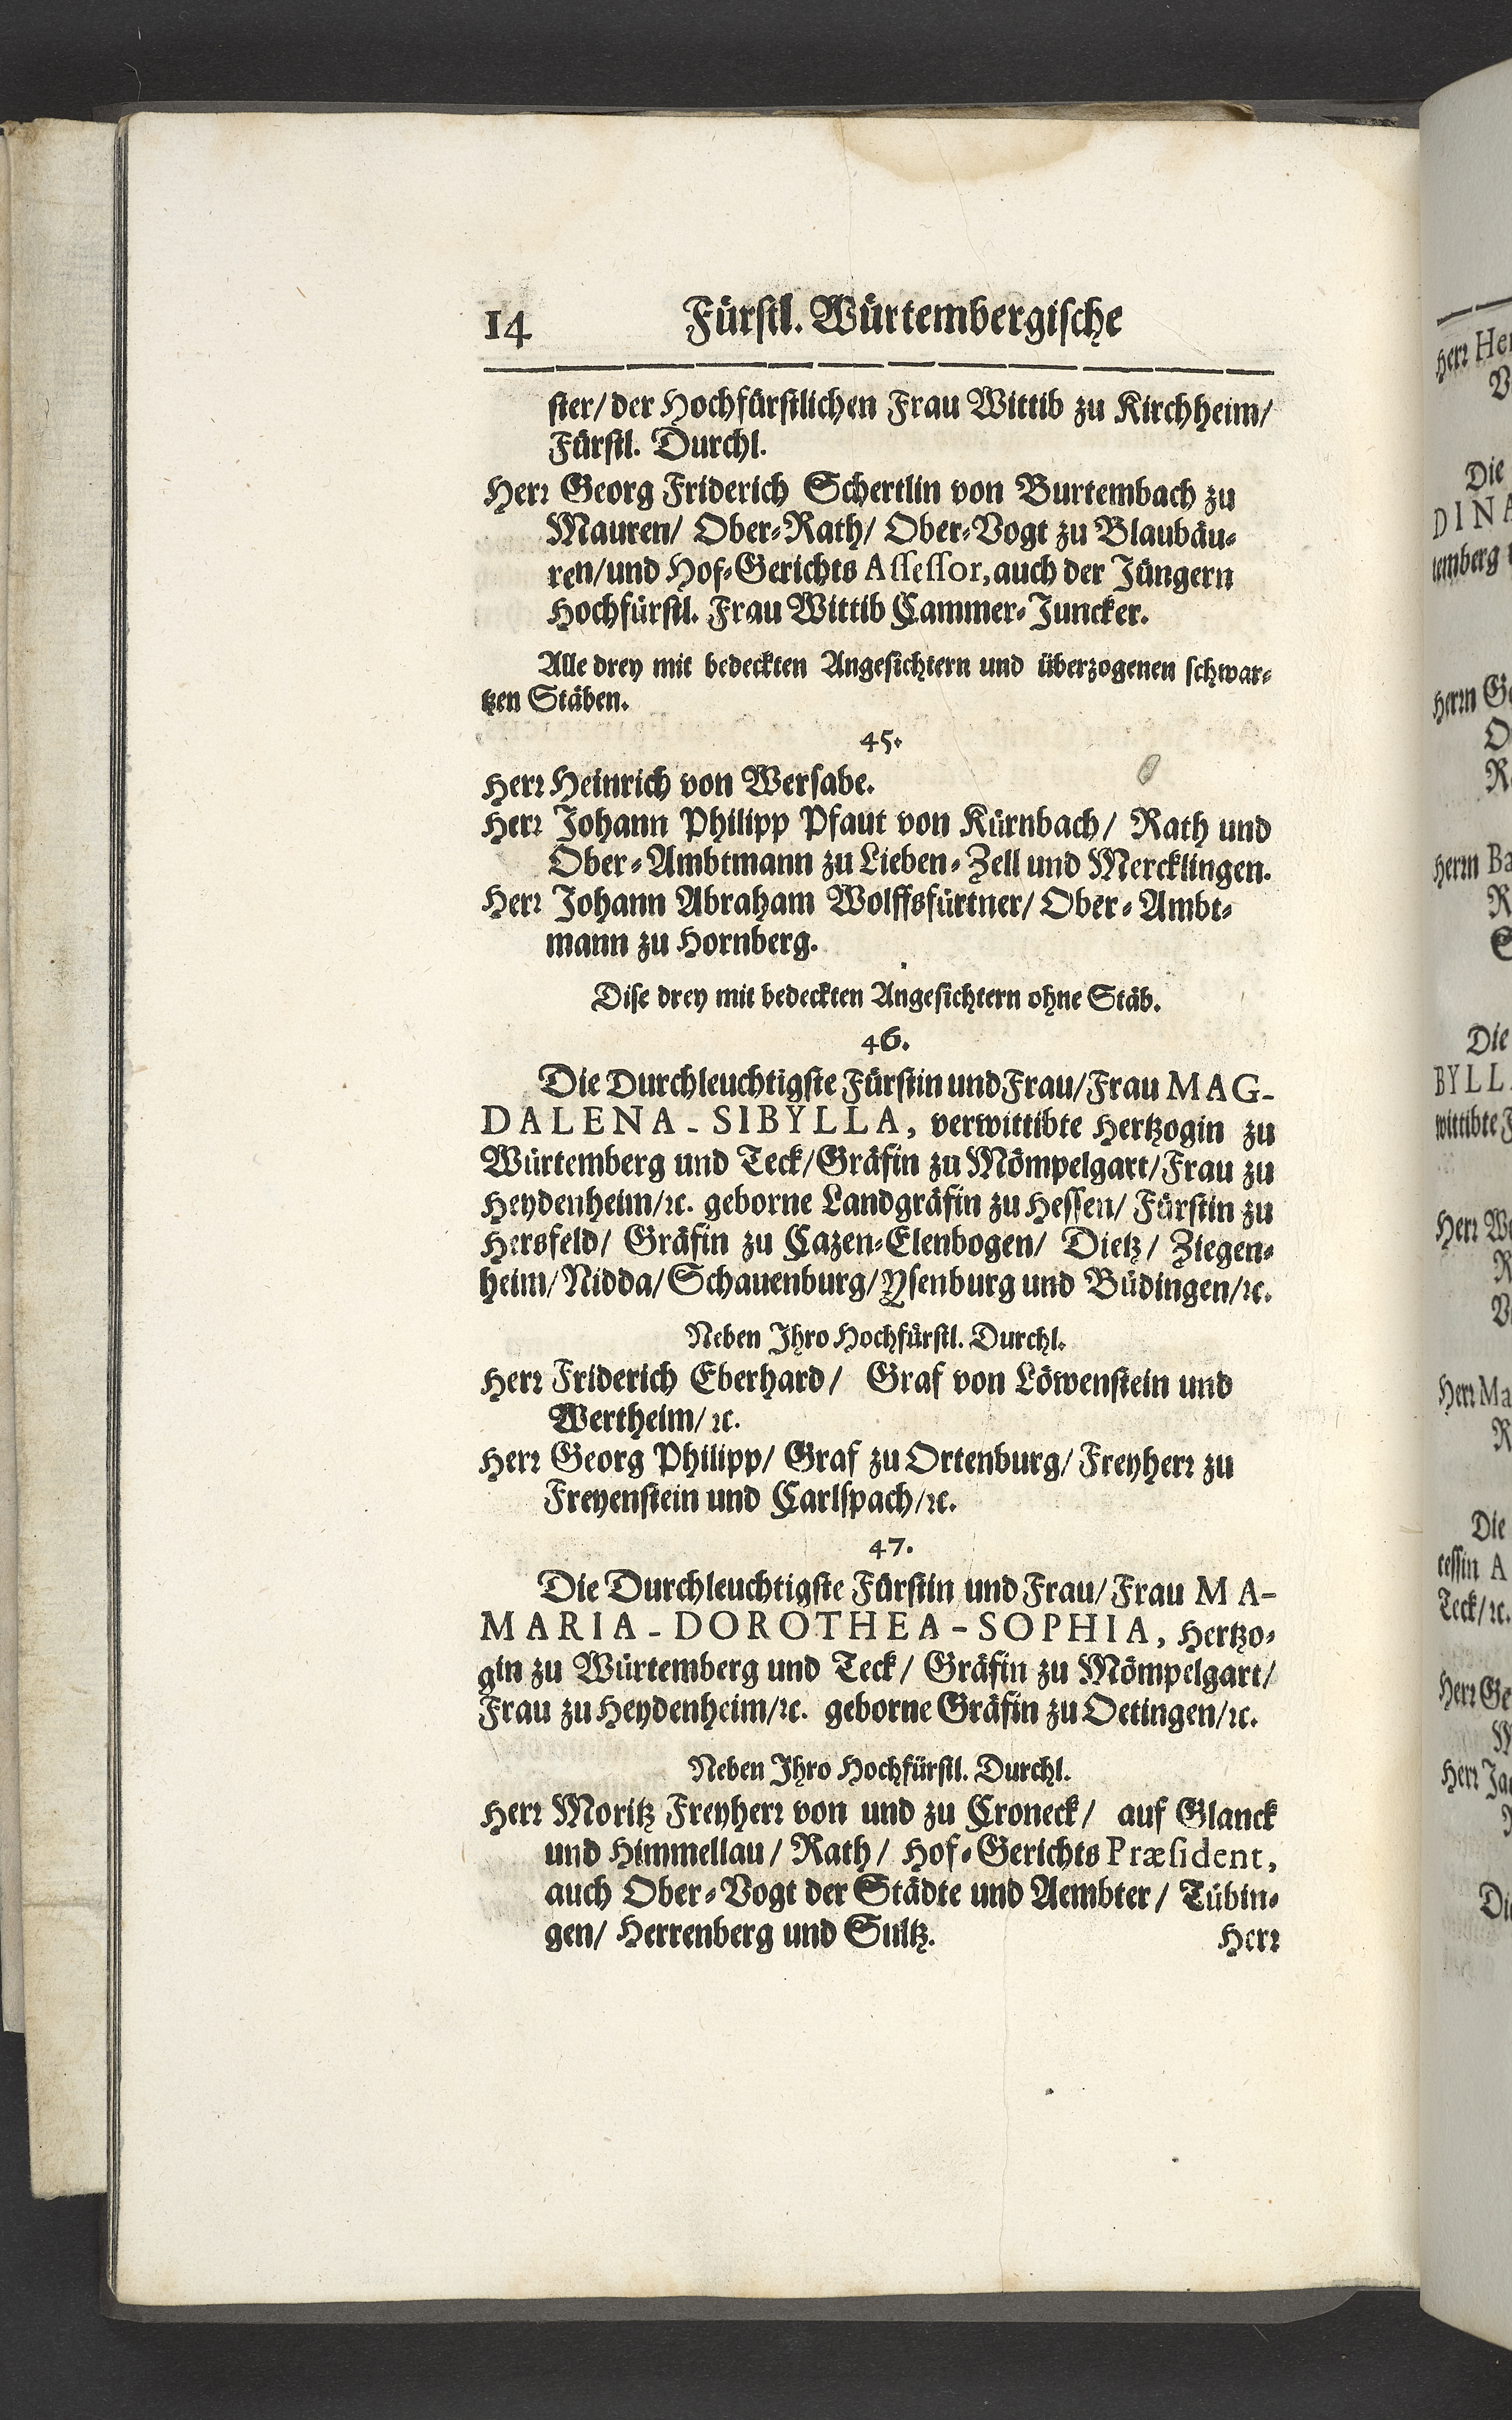 14 Fürstl. Würtembergische
ster/ der Hochfürstlichen Frau Wittib zu Kirchheim/
Fürstl. Durchl.
Herr Georg Friderich Schertlin von Burtembach zu
Mauren/ Ober-Rath/ Ober-Vogt zu Blaubäu-
ren/ und Hof-Gerichts Assessor, auch der Jüngern
Hochfürstl. Frau Wittib Cammer-Juncker.
Alle drey mit bedeckten Angesichtern und überzogenen schwar-
tzen Stäben.
45.
Herr Heinrich von Wersabe.
Herr Johann Philipp Pfaut von Kürnbach/ Rath und
Ober-Ambtmann zu Lieben-Zell und Mercklingen.
Herr Johann Abraham Wolffsfürtner/ Ober-Ambt-
mann zu Hornberg.
Dise drey mit bedeckten Angesichtern ohne Stäb.
46.
Die Durchleuchtigste Fürstin und Frau/ Frau MAG-
DALENA-SIBYLLA, verwittibte Hertzogin zu
Würtemberg und Teck/ Gräfin zu Mömpelgart/ Frau zu
Heydenheim/ ꝛc. geborne Landgräfin zu Hessen/ Fürstin zu
Hersfeld/ Gräfin zu Cazen-Elenbogen/ Dietz/ Ziegen-
heim/ Nidda/ Schauenburg/ Ysenburg und Büdingen/ ꝛc.
Neben Ihro Hochfürstl. Durchl.
Herr Friderich Eberhard/ Graf von Löwenstein und
Wertheim/ ꝛc.
Herr Georg Philipp/ Graf zu Ortenburg/ Freyherr zu
Freyenstein und Carlspach/ ꝛc.
47.
Die Durchleuchtigste Fürstin und Frau/ Frau MA-
MARIA-DOROTHEA-SOPHIA, Hertzo-
gin zu Würtemberg und Teck/ Gräfin zu Mömpelgart/
Frau zu Heydenheim/ ꝛc. geborne Gräfin zu Oetingen/ ꝛc.
Neben Ihro Hochfürstl. Durchl.
Herr Moritz Freyherr von und zu Croneck/ auf Glanck
und Himmellau/ Rath/ Hof-Gerichts Præsident,
auch Ober-Vogt der Städte und Aembter/ Tübin-
gen/ Herrenberg und Sultz.
Herr